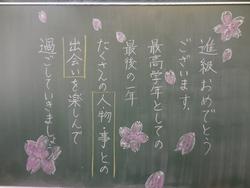 進級おめでとう
ございます。
最高学年としての
最後の一年
たくさんの人物事との
出会いを楽しんで
過ごしていきましょう